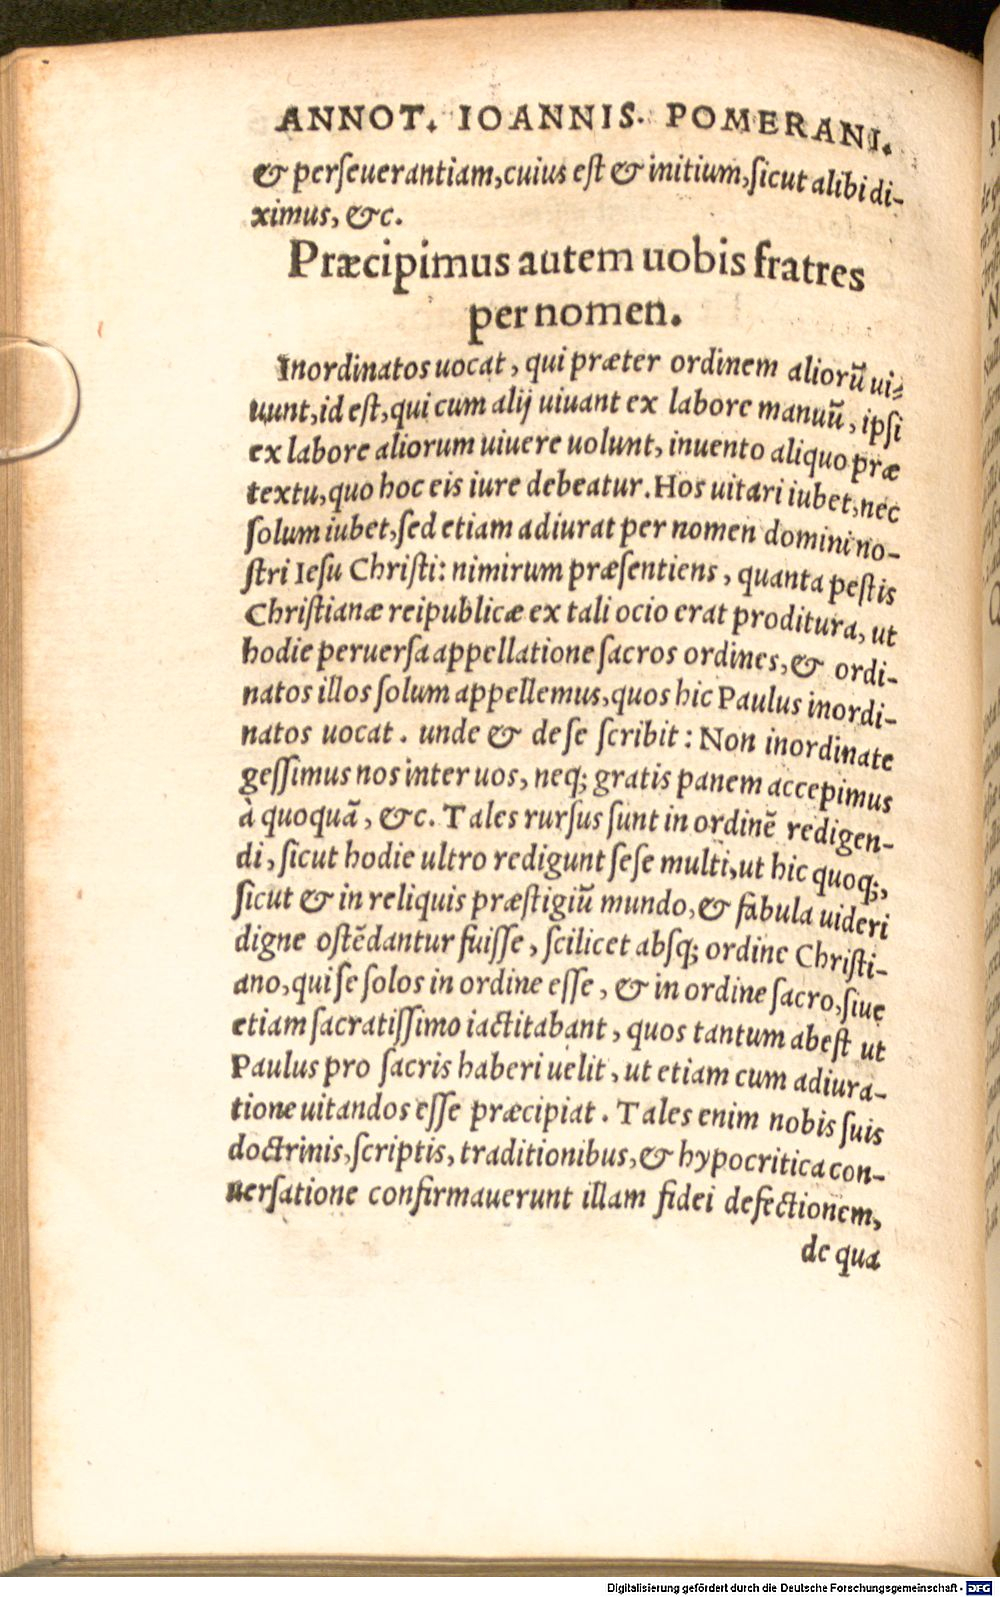 ANNOT. IOANNIS. POMERANI.
& perſeuerantiam, cuius eſt & initium, ſicut alibi di-
ximus, &c.
Præcipimus autem uobis fratres
per nomen.
Inordinatos uocat, qui præter ordinem aliorū ui-
uunt, id eſt, qui cum alij uiuant ex labore manuū, ipſi
ex labore aliorum uiuere uolunt, inuento aliquo præ
textu, quo hoc eis iure debeatur. Hos uitari iubet, nec
ſolum iubet, ſed etiam adiurat per nomen domini no-
ſtri Ieſu Chriſti: nimirum præſentiens, quanta peſtis
Chriſtianæ reipublicæ ex tali ocio erat proditura, ut
hodie peruerſa appellatione ſacros ordines, & ordi-
natos illos ſolum appellemus, quos hic Paulus inordi-
natos uocat. unde & de ſe ſcribit: Non inordinate
geſſimus nos inter uos, neq; gratis panem accepimus
à quoquā, &c. Tales rurſus ſunt in ordinē redigen-
di, ſicut hodie ultro redigunt ſeſe multi, ut hic quoq;,
ſicut & in reliquis præſtigiū mundo, & fabula uideri
digne oſtēdantur fuiſſe, ſcilicet abſq; ordine Chriſti-
ano, qui ſe ſolos in ordine eſſe, & in ordine ſacro, ſiue
etiam ſacratiſſimo iactitabant, quos tantum abeſt ut
Paulus pro ſacris haberi uelit, ut etiam cum adiura-
tione uitandos eſſe præcipiat. Tales enim nobis ſuis
doctrinis, ſcriptis, traditionibus, & hypocritica con-
uerſatione confirmauerunt illam fidei defectionem,
de qua
Digitalisierung gefördert durch die Deutsche Forschungsgemeinschaft - DFG